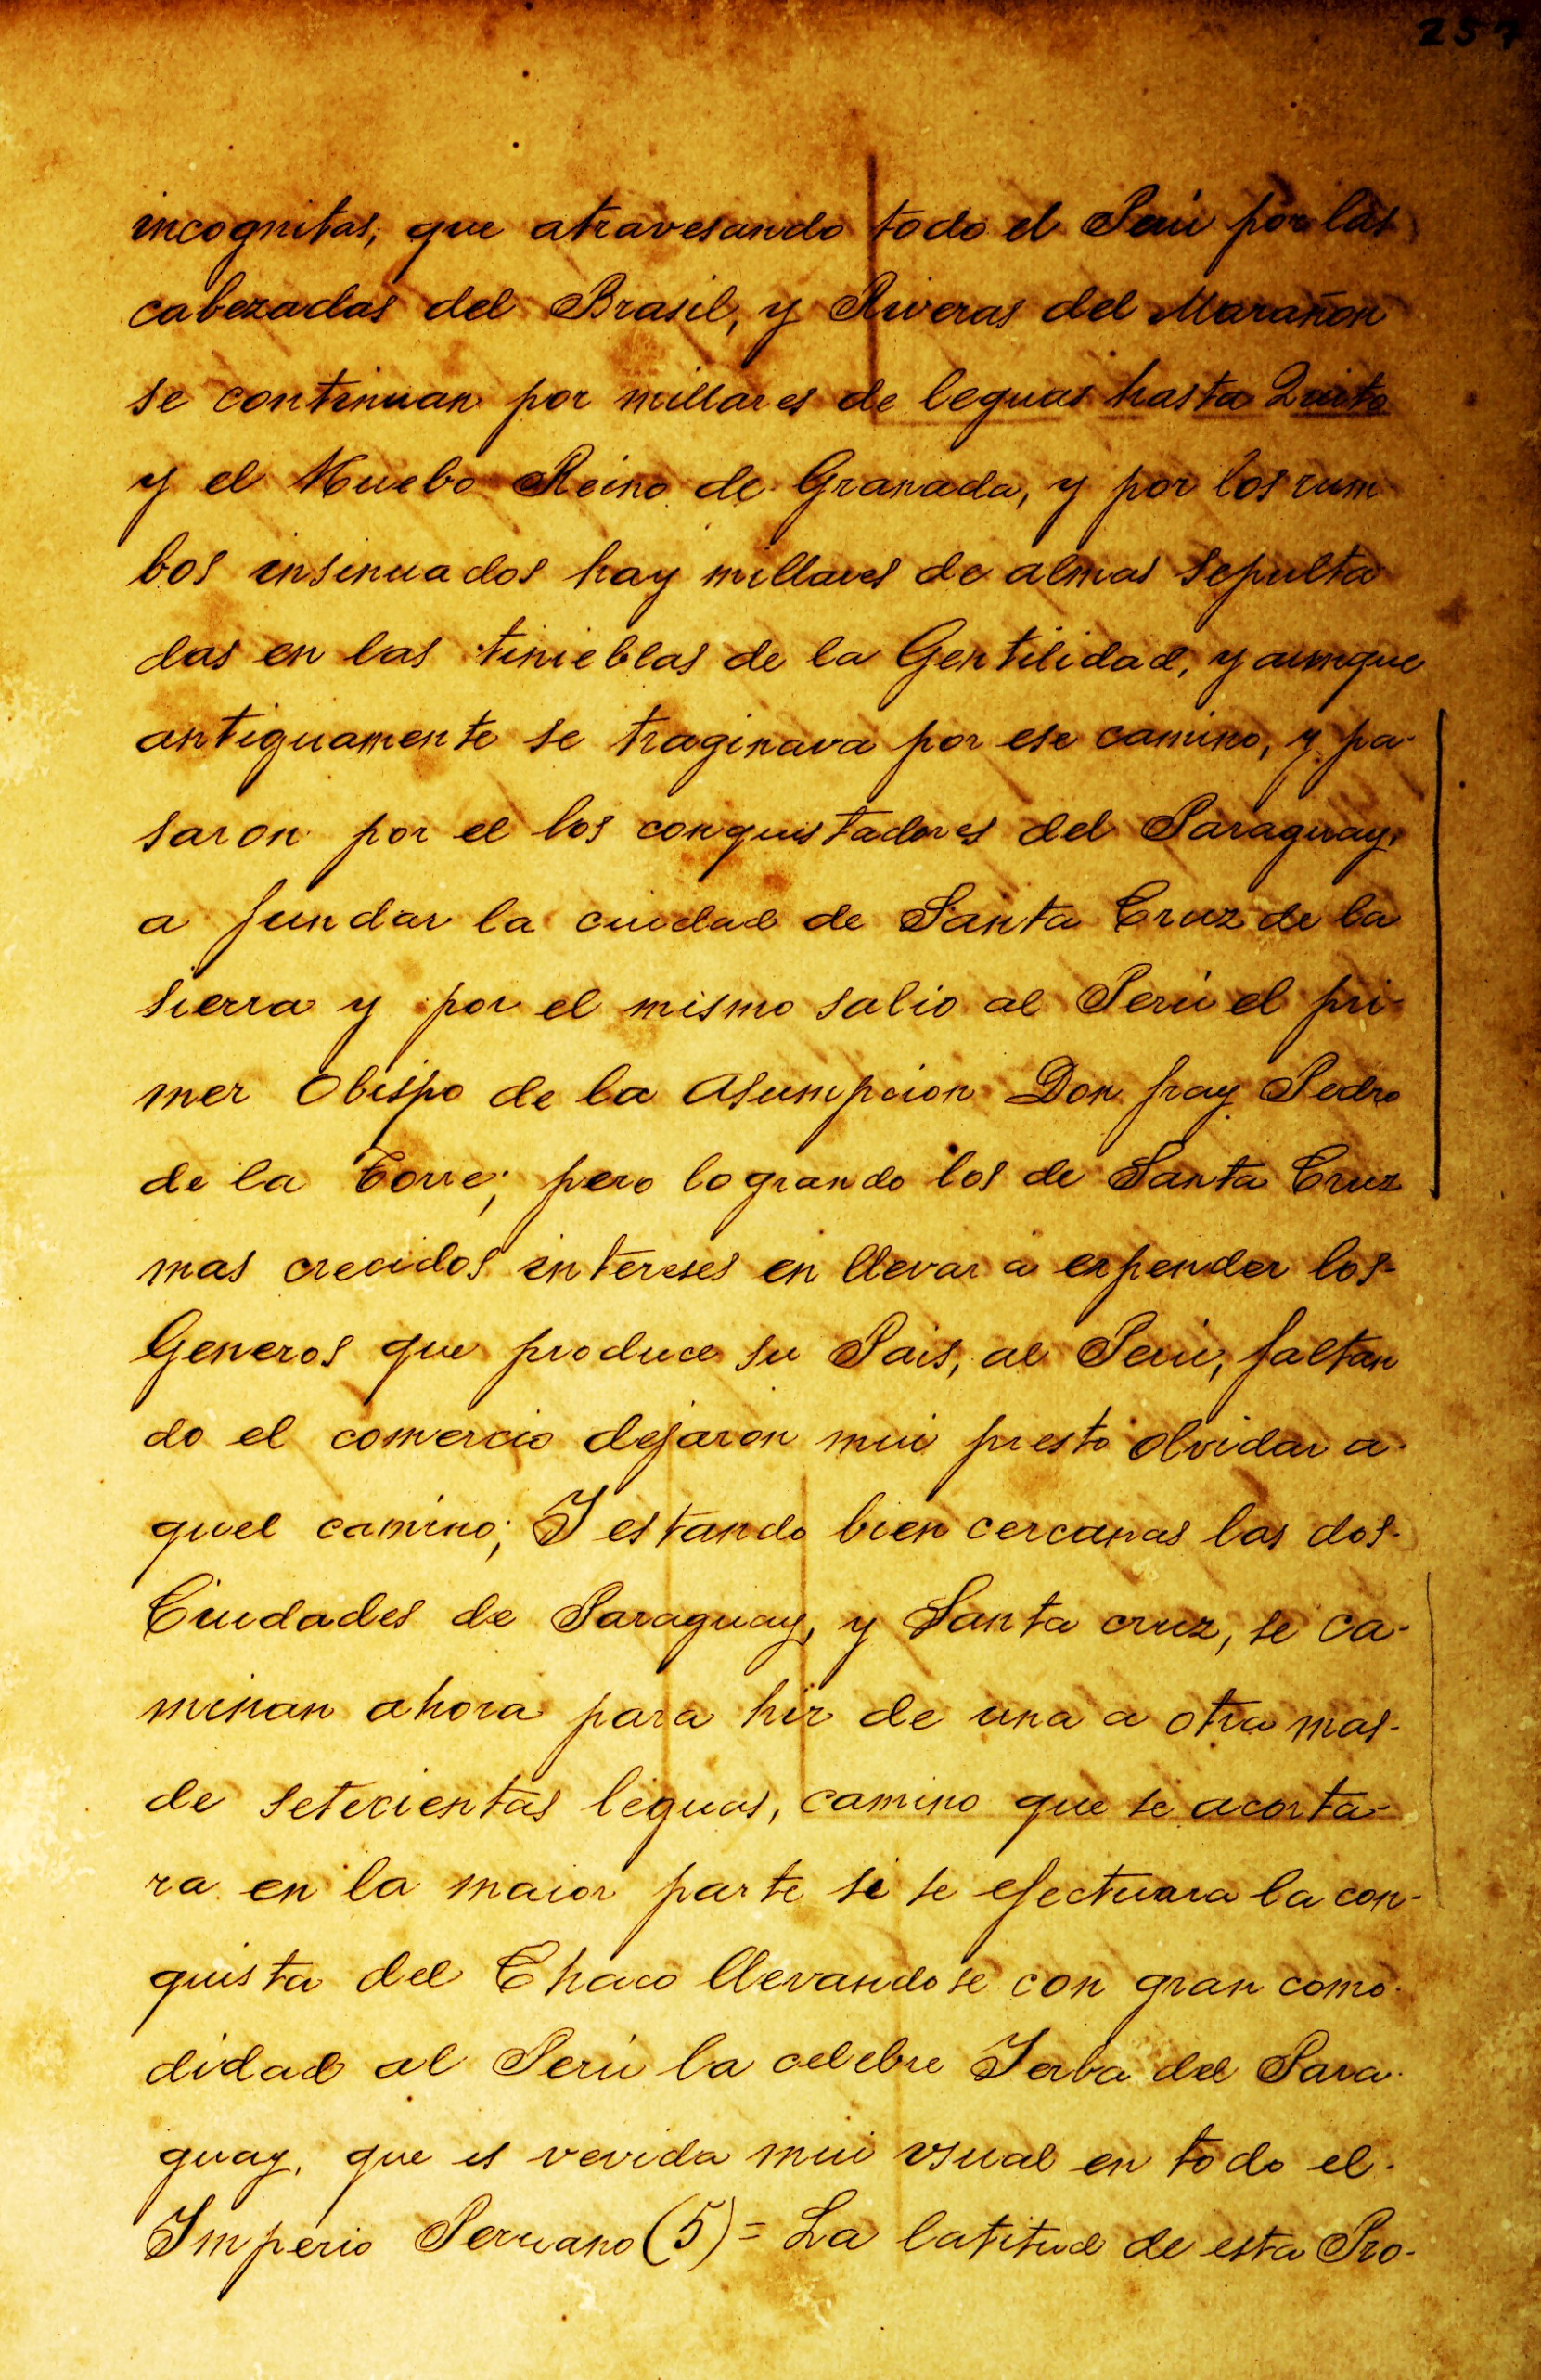 257
incognitas; que atravesando todo el Perú por las
cabezadas del Brasil, y Riveras del Marañon
se continuan por millares de leguas hasta Quito
y el Nuebo Reino de Granada, y por los rum
bos insinuados hay millares de almas sepulta
das en las tinieblas de la Gentilidad, y aunque
antiguamente se traginava por ese camino, y pa-
saron por el los conquistadores del Paraguay,
a fundar la ciudad de Santa Cruz de la
sierra y por el mismo salio al Perú el pri-
mer Obispo de la Asumpcion Don fray Pedro
de la Torre; pero logrando los de Santa Cruz
mas crecidos intereses en llevar a expender los-
Generos que produce su Pais, al Perú, faltan
do el comercio dejaron mui presto olvidar a-
quel camino; I estando bien cercanas las dos-
Ciudades de Paraguay, y Santa cruz, se ca-
minan ahora para hir de una a otra mas-
de setecientas leguas, camino que se acorta-
ra en la maior parte si se efectuara la con-
quista del Chaco llevandose con gran como-
didad al Perú la celebre Ierba del Para-
guay, que es vevida mui vsual en todo el-
Imperio Perruano (5) = La latitud de esta Pro-